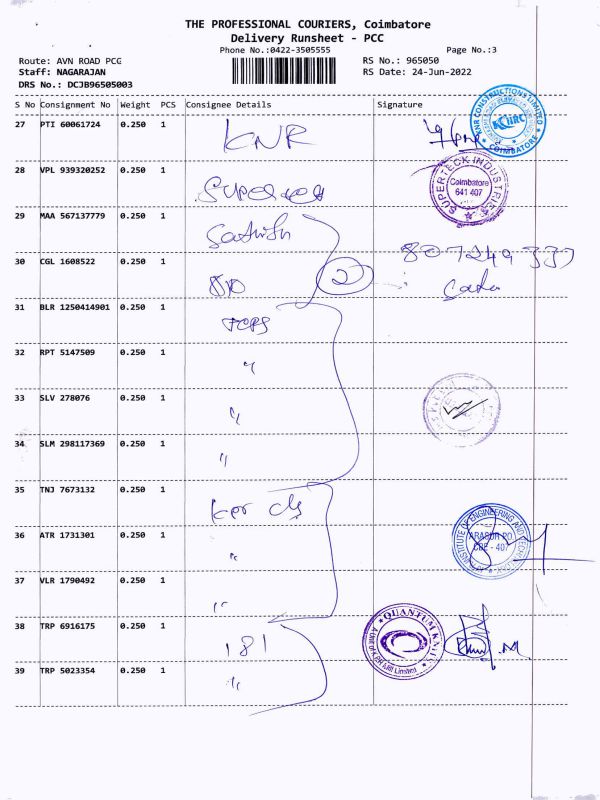 THE PROFESSIONAL COURIERS, Coimbatore
Delivery Runsheet - PCC
Phone No.:0422-3505555
Page No.:3
Route: AVN ROAD PCG
RS No.: 965050
Staff: NAGARAJAN
RS Date: 24-Jun-2022
DRS No.: DCJB96505003
S No Consignment No Weight PCS Consignee Details Signature
27 PTI 60061724 0.250 1 KNR
KNR CONSTRUCTIONS LIMITED
COIMBATORE
28 VPL 939320252 0.250 1
SUPERTECK INDUSTRIES
Coimbatore
641 407
29 MAA 567137779 0.250 1
30 CGL 1608522 0.250 1
2
31 BLR 1250414901 0.250 1
32 RPT 5147509 0.250 1 "
33 SLV 278076 0.250 1 "
34 SLM 298117369 0.250 1 "
35 TNJ 7673132 0.250 1
36 ATR 1731301 0.250 1 "
INSTITUTE OF ENGINEERING AND
ARASUR PO
CBE - 407
37 VLR 1790492 0.250 1 "
38 TRP 6916175 0.250 1 181
QUANTUM
39 TRP 5023354 0.250 1 "